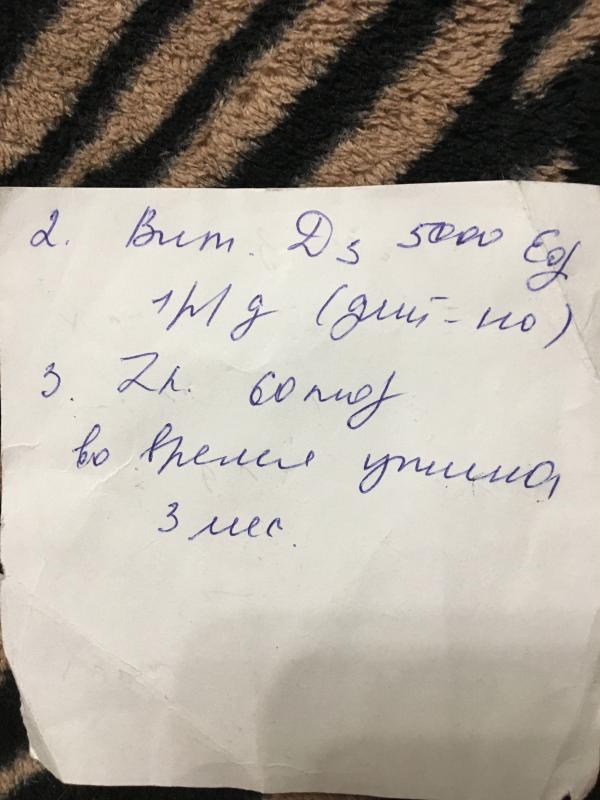 2. Вит. Д3 5000 Ед
1р/д (длит-но)
3. Zn. 60 мг
во время ужина
3 мес.